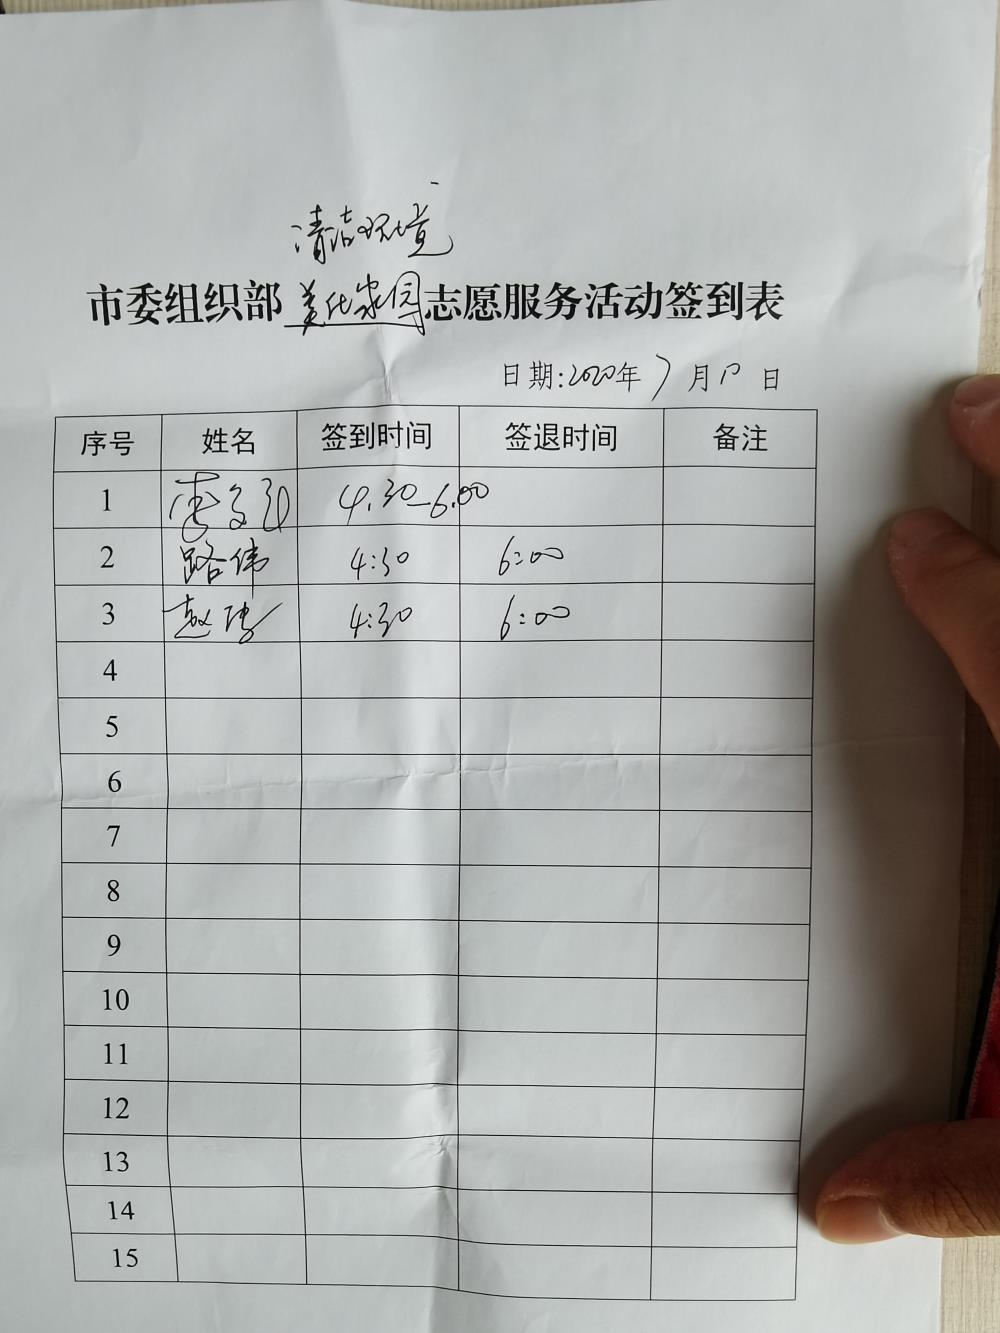 清洁环境
市委组织部美化家园志愿服务活动签到表
日期:2020年7月17日
序号 姓名 签到时间 签退时间 备注
1 4.30-6.00
2 路伟 4:30 6:00
3 赵倩 4:30 6:00
4
5
6
7
8
9
10
11
12
13
14
15